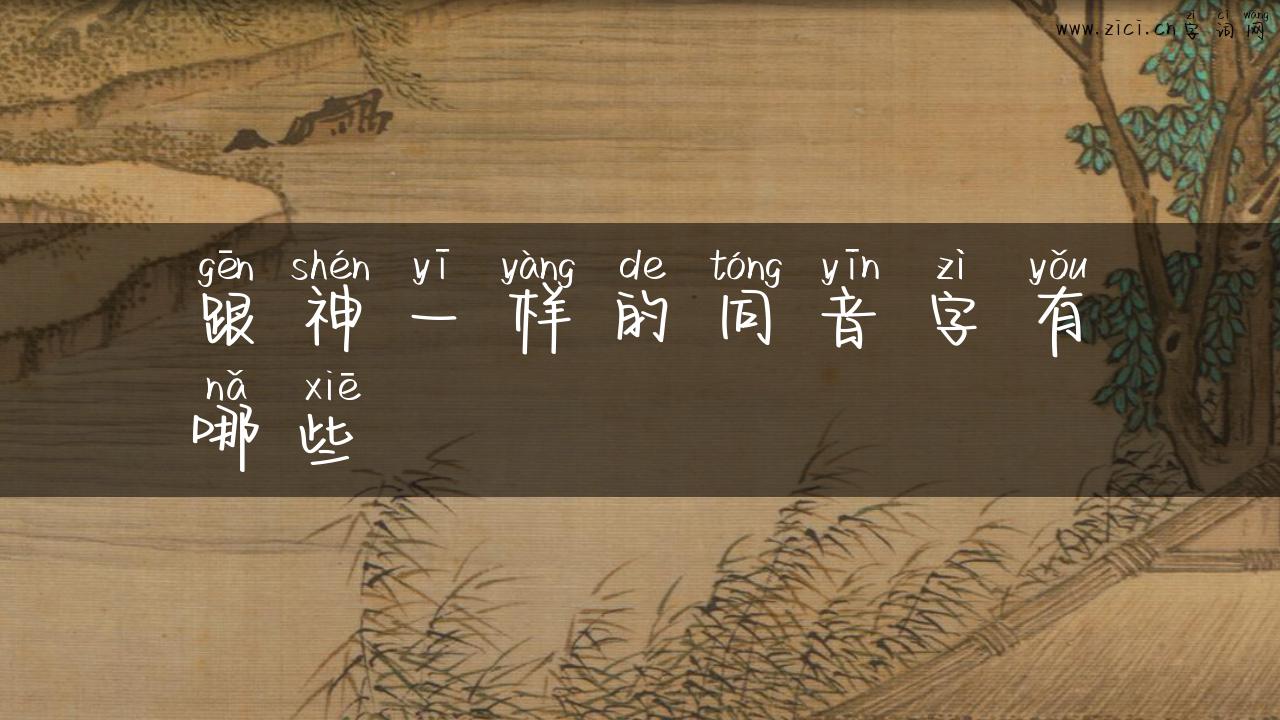 zì cí wǎng
www.zici.cn字词网
gēn shén yī yàng de tóng yīn zì yǒu
跟神一样的同音字有
nǎ xiē
哪些